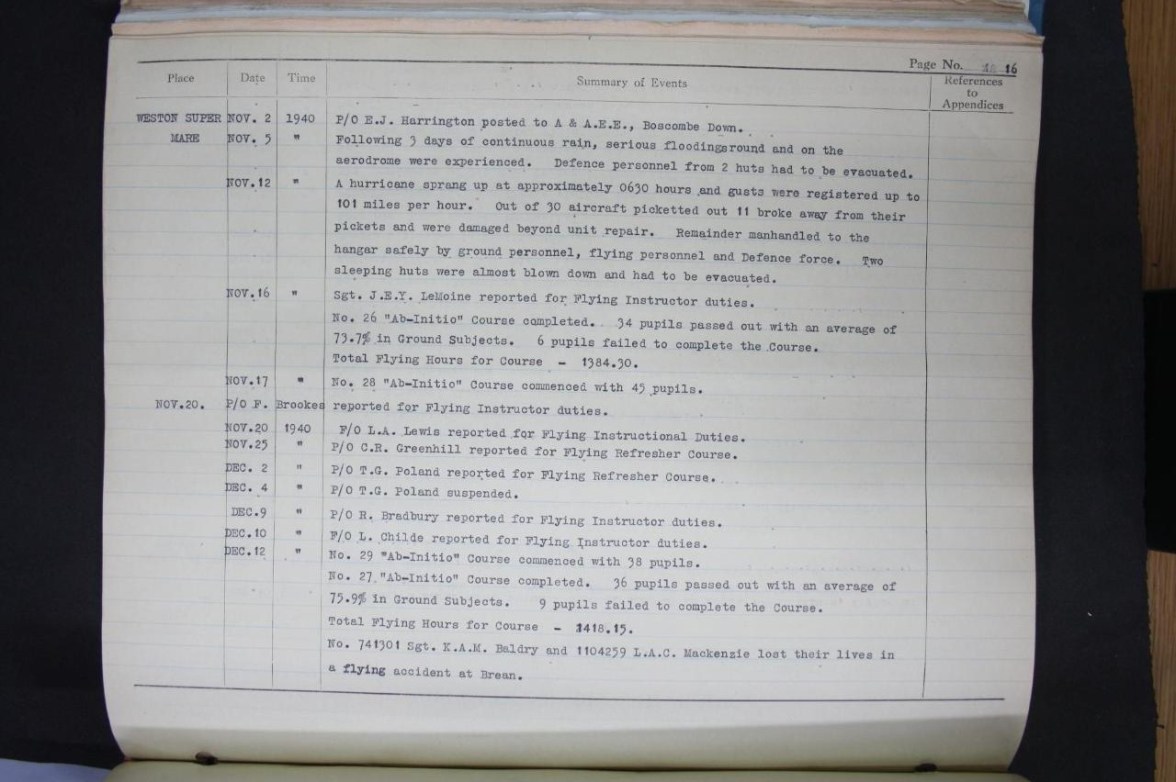 Page No. 16
Place Date Time Summary of Events References
to
Appendices
WESTON SUPER NOV. 2 1940 P/O E.J. Harrington posted to A & A.E.E., Boscombe Down.
MARE NOV. 5 " Following 3 days of continuous rain, serious floodingsround and on the
aerodrome were experienced. Defence personnel from 2 huts had to be evacuated.
NOV.12 " A hurricane sprang up at approximately 0630 hours and gusts were registered up to
101 miles per hour. Out of 30 aircraft picketted out 11 broke away from their
pickets and were damaged beyond unit repair. Remainder manhandled to the
hangar safely by ground personnel, flying personnel and Defence force. Two
sleeping huts were almost blown down and had to be evacuated.
NOV.16 " Sgt. J.E.Y. LeMoine reported for Flying Instructor duties.
No. 26 "Ab-Initio" Course completed. 34 pupils passed out with an average of
73.7% in Ground Subjects. 6 pupils failed to complete the Course.
Total Flying Hours for Course - 1384.30.
NOV.17 " No. 28 "Ab-Initio" Course commenced with 45 pupils.
NOV.20. P/O F. Brookes reported for Flying Instructor duties.
NOV.20 1940 F/O L.A. Lewis reported for Flying Instructional Duties.
NOV.25 " P/O C.R. Greenhill reported for Flying Refresher Course.
DEC. 2 " P/O T.G. Poland reported for Flying Refresher Course.
DEC. 4 " P/O T.G. Poland suspended.
DEC.9 " P/O R. Bradbury reported for Flying Instructor duties.
DEC.10 " F/O L. Childe reported for Flying Instructor duties.
DEC.12 " No. 29 "Ab-Initio" Course commenced with 38 pupils.
No. 27 "Ab-Initio" Course completed. 36 pupils passed out with an average of
75.9% in Ground Subjects. 9 pupils failed to complete the Course.
Total Flying Hours for Course - 1418.15.
No. 741301 Sgt. K.A.M. Baldry and 1104259 L.A.C. Mackenzie lost their lives in
a flying accident at Brean.